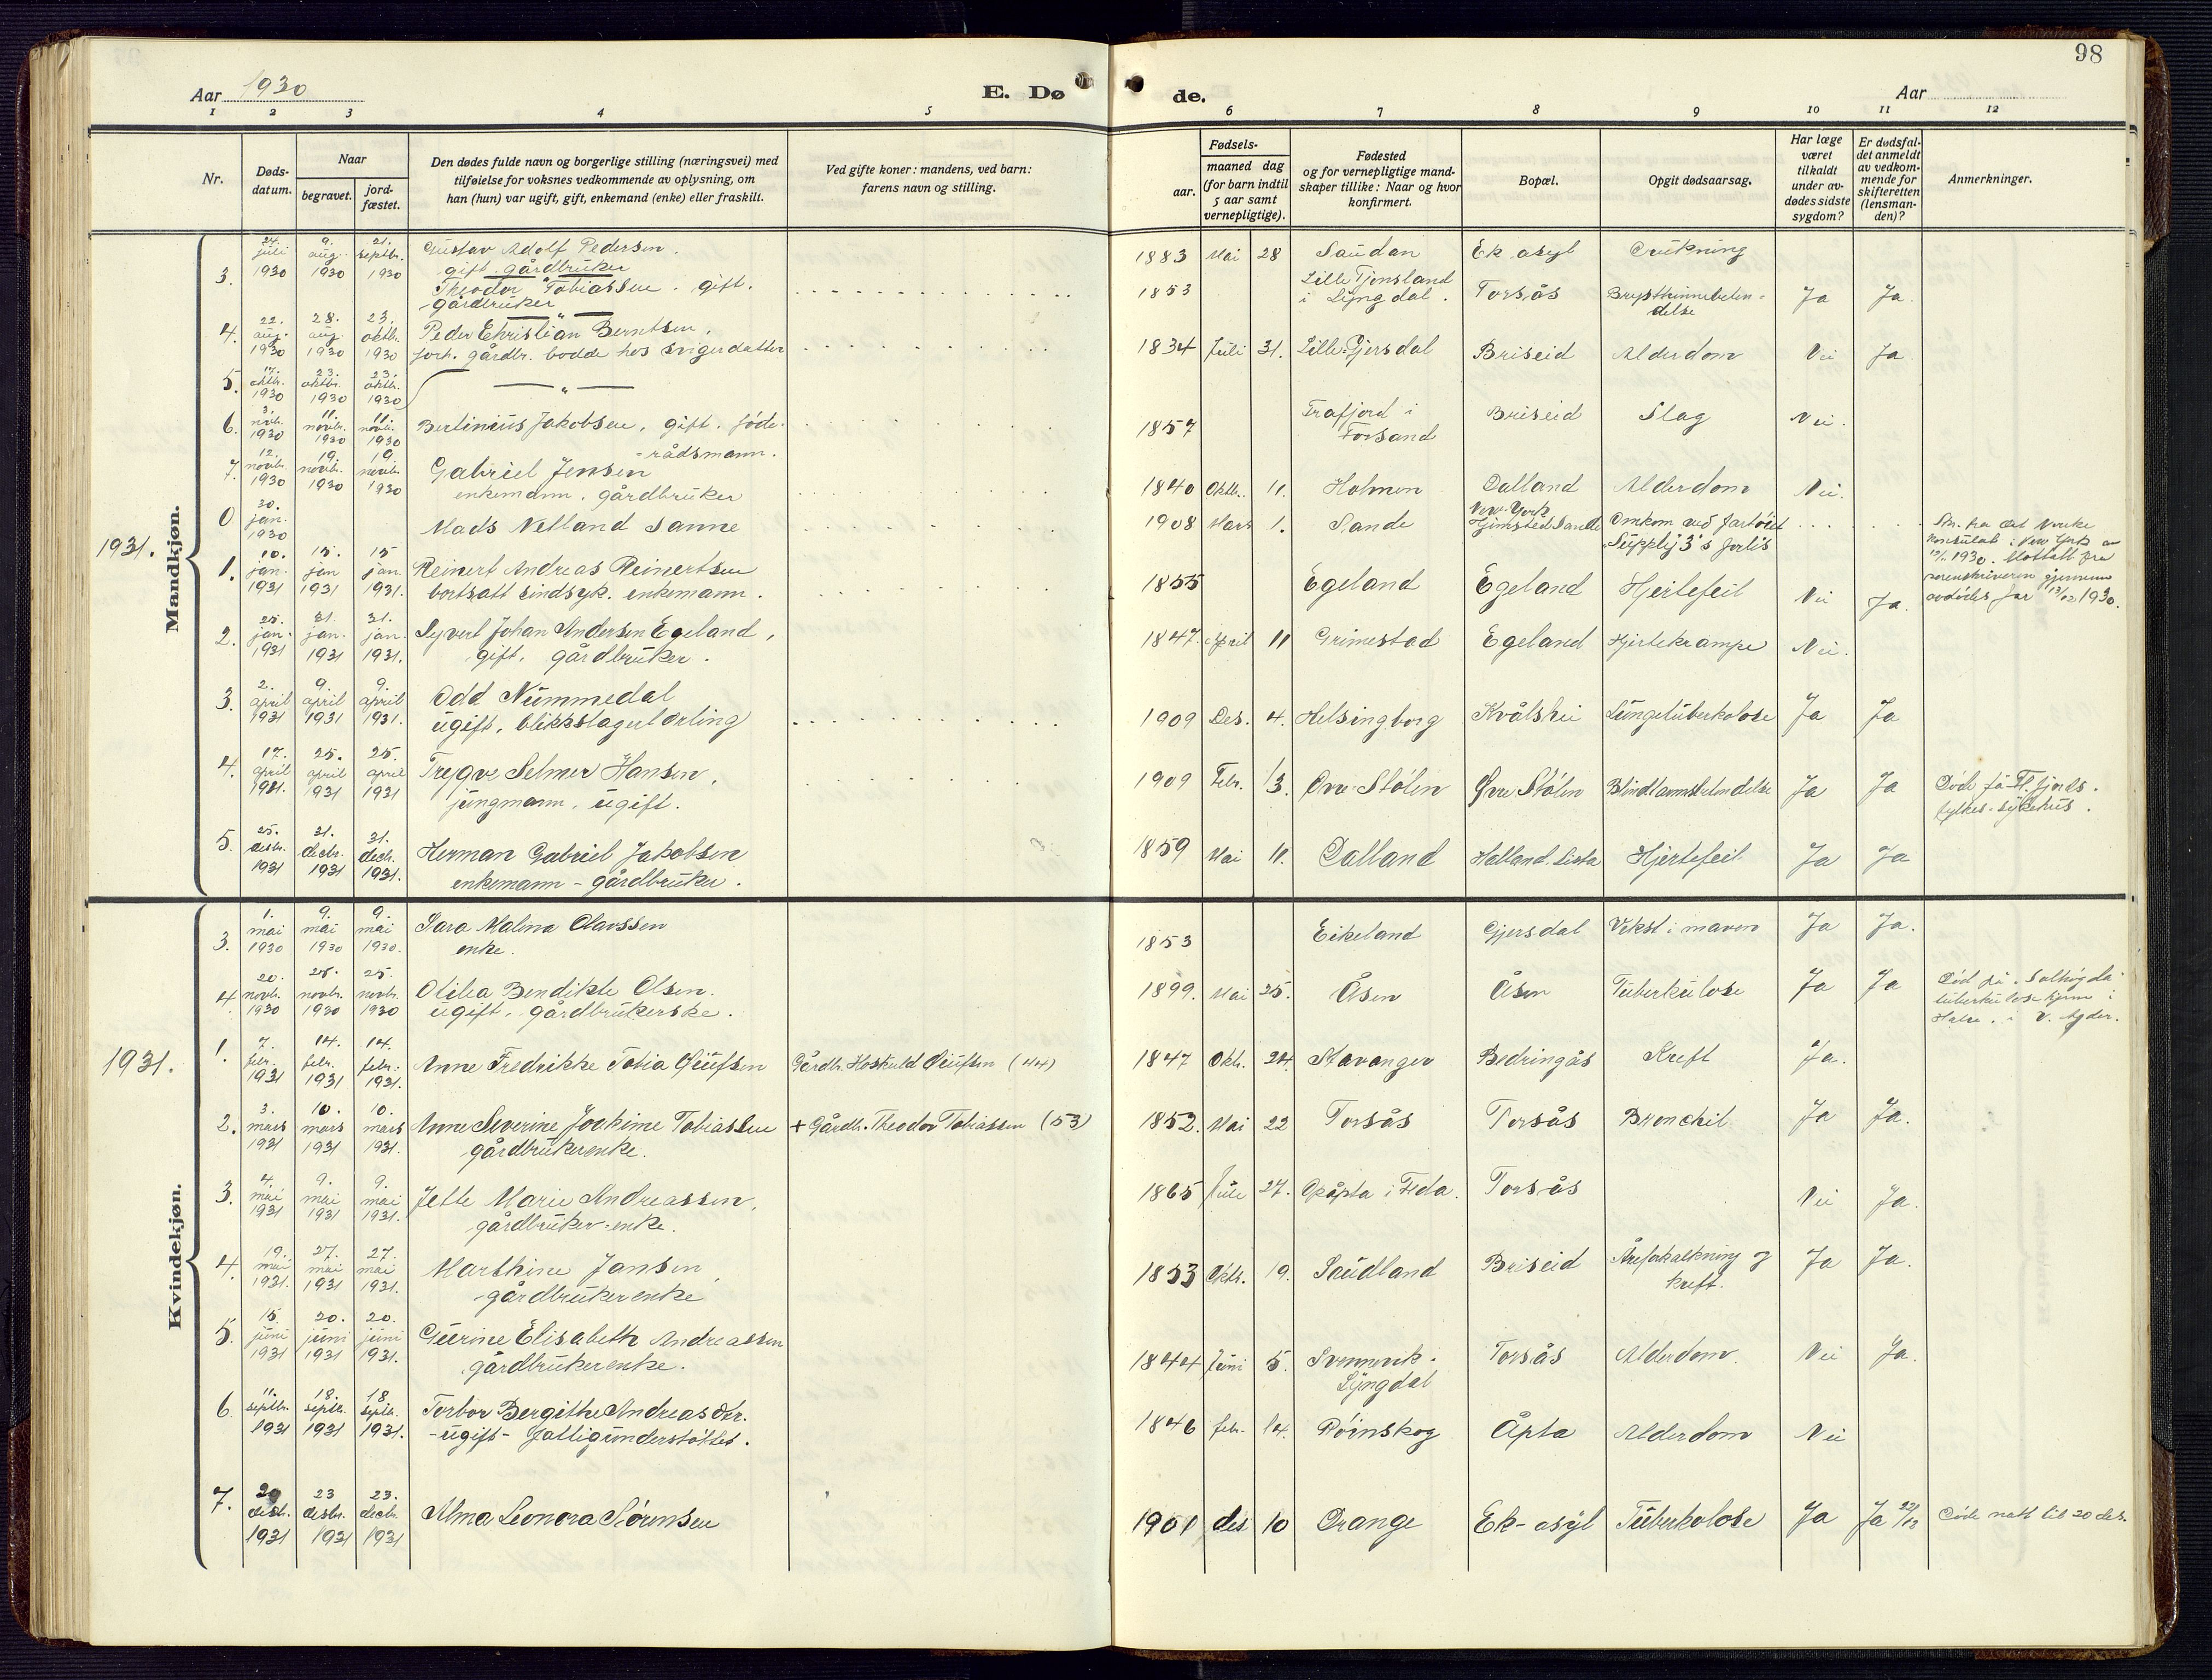 98
Aar 1930
E. Dø
de.
Aar
1 2 3 4 5 6 7 8 9 10 11 12
Nr.
Døds-
datum.
Naar
begravet.
jord-
fæstet.
Den dødes fulde navn og borgerlige stilling (næringsvei) med
tilføielse for voksnes vedkommende av oplysning, om
han (hun) var ugift, gift, enkemand (enke) eller fraskilt.
Ved gifte koner: mandens, ved barn:
farens navn og stilling.
Fødsels-
aar.
maaned dag
(for barn indtil
5 aar samt
vernepligtige).
Fødested
og for vernepligtige mand-
skaper tillike: Naar og hvor
konfirmert.
Bopæl.
Opgit dødsaarsag.
Har læge
været
tilkaldt
under av-
dødes sidste
sygdom?
Er dødsfal-
det anmeldt
av vedkom-
mende for
skifteretten
(lensman-
den)?
Anmerkninger.
Mandkjøn.
3. 24. juli 1930 9. aug. 1930 21. septbr. 1930 Gustav Adolf Pedersen.
gift. gårdbruker
1883 Mai 28 Saudan Ek asyl Drukning
Theodor Tobiassen. gift.
gårdbruker
1853 Lille Tjomsland
i Lyngdal. Torsås Brysthinnebeten-
delse Ja Ja.
4. 22. aug. 1930 28. aug. 1930 23. oktbr. 1930 Peder Christian Berntsen,
forh. gårdbr. bodde hos svigerdatter
1834 Juli 31. Lille-Gjersdal Briseid Alderdom Nei Ja.
5. 17. oktbr. 1930 23. oktbr. 1930 23. oktbr. 1930 — " —
6. 3. novb. 1930 11. novbr. 1930 11. novbr. 1930 Bertinius Jakobsen, gift. føde-
rådsmann.
1857 Frafjord i
Forsand Briseid Slag Nei.
7. 12. novbr. 1930 19. novbr. 1930 19. novbr. 1930 Gabriel Jensen
enkemann. gårdbruker
1840 Oktb. 11. Holmen Dalland Alderdom Nei.
0 30. jan. 1930 Mads Netland Sanne
1908 Mars 1. Sande New-York
Hjemsted: Sande Omkom ved fartøiet
"Supply 3"s forlis
1931.
1. 10. jan. 1931 15. jan 1931 15 jan. 1931. Reinert Andreas Reinertsen
bortsatt sindsyk. enkemann.
1855 Egeland Egeland Hjertefeil Nei Ja.
2. 25. jan. 1931 31. jan. 1931 31. jan. 1931. Syvert Johan Andersen Egeland,
gift, gårdbruker.
1847. April 11 Grimestad Egeland Hjertekrampe Nei.
3. 2. april 1931 9. april 1931 9. april 1931. Odd Nummedal
ugift, blikkslagerlærling
1909 Des. 4. Helsingborg Kvålshei Lungetuberkolose Ja Ja
4. 17. april 1931. 25. april 1931 25. april 1931 Trygve Selmer Hansen,
jungmann, ugift.
1909 Febr. 13. Øvre Stølen Øvre Stølen Blindtarmsbetendelse Ja Ja Døde på Fl.fjords.
fylkes-sykehus.
5. 25. desbr. 1931 31. decbr. 1931 31. decb. 1931. Herman Gabriel Jakobsen
enkemann - gårdbruker.
1859 Mai 11. Dalland Halland. Lista Hjertefeil Ja Ja
Kvindekjøn.
3. 1. mai 1930 9. mai 1930 9. mai 1930. Sara Malena Olavssen
enke.
1853 Eikeland Gjersdal Vekst i maven Ja Ja.
4. 20. novbr. 1930 25. novbr. 1930 25. novbr. 1930 Otilia Bendikte Olsen.
ugift, gårdbrukerske.
1899. Mai 25. Åsen Åsen Tuberkulose Ja Ja
1931.
1. 7. febr. 1931 14. febr. 1931 14. febr. 1931. Anne Fredrikke Tobia Giufsen Gårdbr. Hoskuld Giufsen (44)
1847 Oktr. 24. Stavanger Bedringås Kreft Ja.
2. 3. mars 1931 10. mars 1931 10. mars 1931. Anne Severine Joakime Tobiassen + Gårdb. Theodor Tobiassen (53)
gårdbrukerenke.
1852. Mai 22 Torsås Torsås Bronchit Ja Ja.
3. 4. mai 1931 9. mai 1931 9. mai 1931. Jette Marie Andreassen,
gårdbruker-enke.
1865 Juli 27. Opåpta i Feda. Torsås Nei Ja.
4. 19. mai 1931. 27. mai 1931 27. mai 1931. Marthine Jansen,
gårdbrukerenke
1853 Oktr. 19. Saudland Briseid Åreforkalkning og
kreft. Ja Ja.
5. 15. juni 1931 20. juni 1931 20. juni 1931. Gurine Elisabeth Andreassen
gårdbrukerenke.
1844 Juni 5. Svennevik.
Lyngdal Torsås Alderdom. Nei Ja.
6. 11. septbr. 1931 18. septb. 1931 18. septb. 1931. Torbor Bergithe Andreasdtr.
-ugift- fattigunderstøttet.
1846 febr. 14. Røinskog Åpta Alderdom Nei
7. 20 desb. 1931 23 desbr. 1931 23. decbr. 1931 Alma Leonora Sørensen
1901 des 10 Orange Ek-asyl Tuberkolose Ja Ja Døde natt til 20 des.